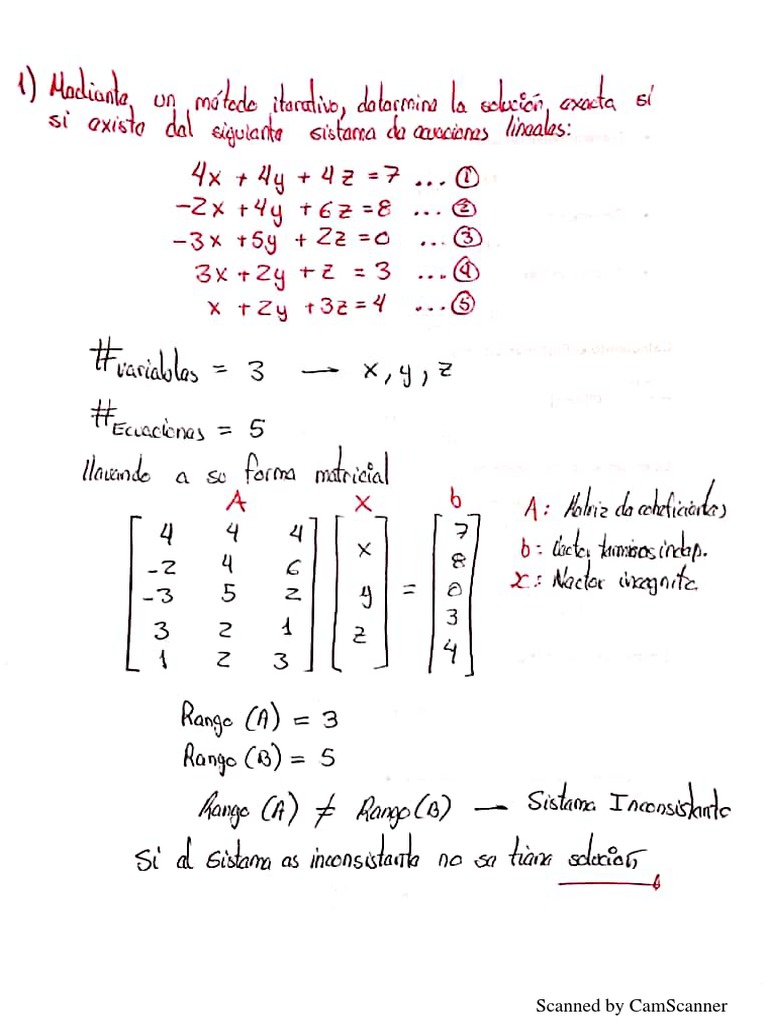 1) Mediante un método iterativo, determine la solución exacta si
si existe del siguiente sistema de ecuaciones lineales:
4x + 4y + 4z = 7 ... ①
-2x + 4y + 6z = 8 ... ②
-3x + 5y + 2z = 0 ... ③
3x + 2y + z = 3 ... ④
x + 2y + 3z = 4 ... ⑤
#variables = 3 → x, y, z
#Ecuaciones = 5
llevando a su forma matricial
A x b
4 4 4 x 7
-2 4 6 8
-3 5 2 y = 0
3 2 1 z 3
1 2 3 4
A: Matriz de coheficientes
b: Vector terminos indep.
x: Vector incognita
Rango (A) = 3
Rango (B) = 5
Rango (A) ≠ Rango (B) → Sistema Inconsistente
Si el sistema es inconsistente no se tiene solución
Scanned by CamScanner